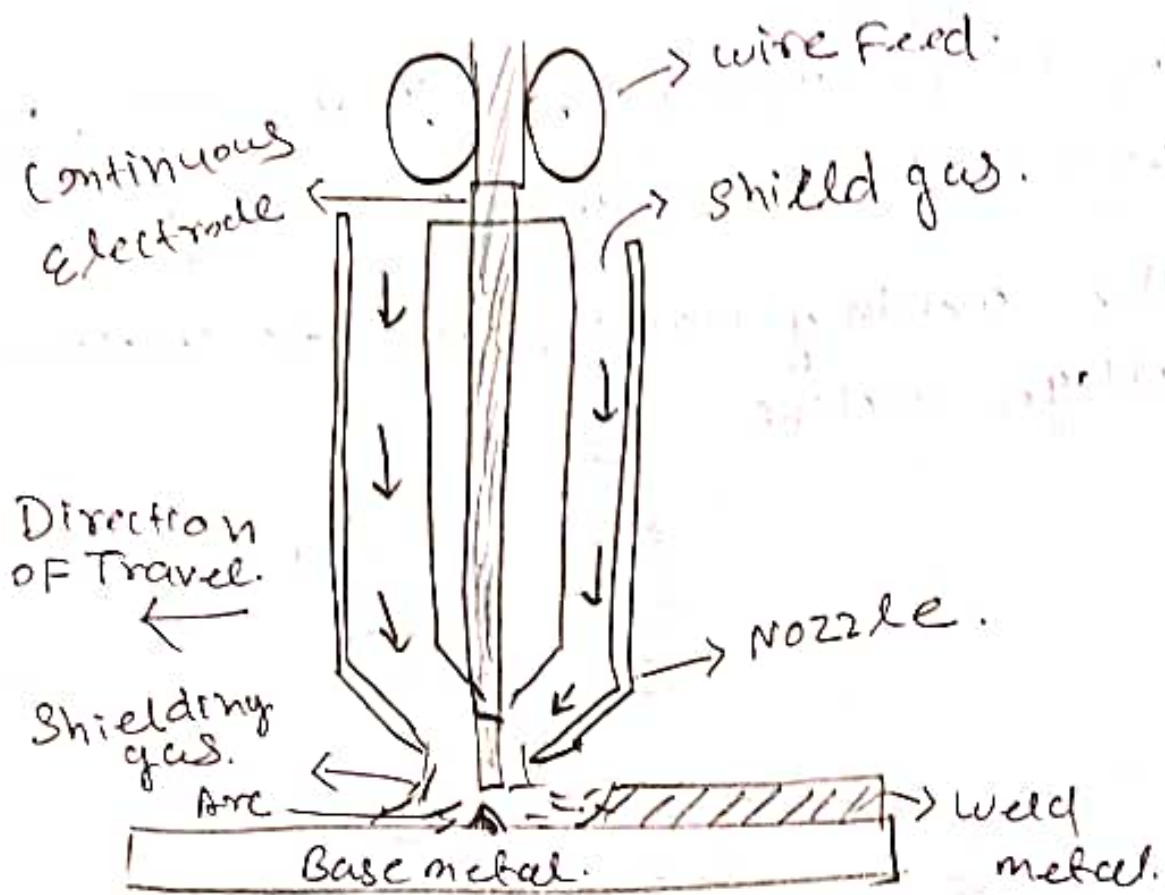 wire Feed.
Continuous
Electrode
Shield gas.
Direction
OF Travel.
Nozzle.
Shielding
gas.
Arc
Weld
metal.
Base metal.